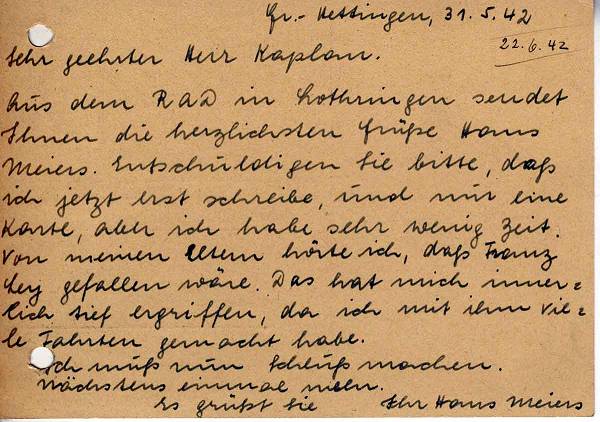 Gr.-Hettingen, 31.5.42
22.6.42
Sehr geehrter Herr Kaplan.
Aus dem RAD in Lothringen sendet
Ihnen die herzlichsten Grüße Hans
Meiers. Entschuldigen Sie bitte, daß
ich jetzt erst schreibe, und nur eine
Karte, aber ich habe sehr wenig Zeit.
Von meinen Eltern hörte ich, daß Franz
Ley gefallen wäre. Das hat mich inner=
lich tief ergriffen, da ich mit ihm vie=
le Fahrten gemacht habe.
Ich muß nun Schluß machen.
Nächstens einmal mehr.
Es grüßt Sie Ihr Hans Meiers